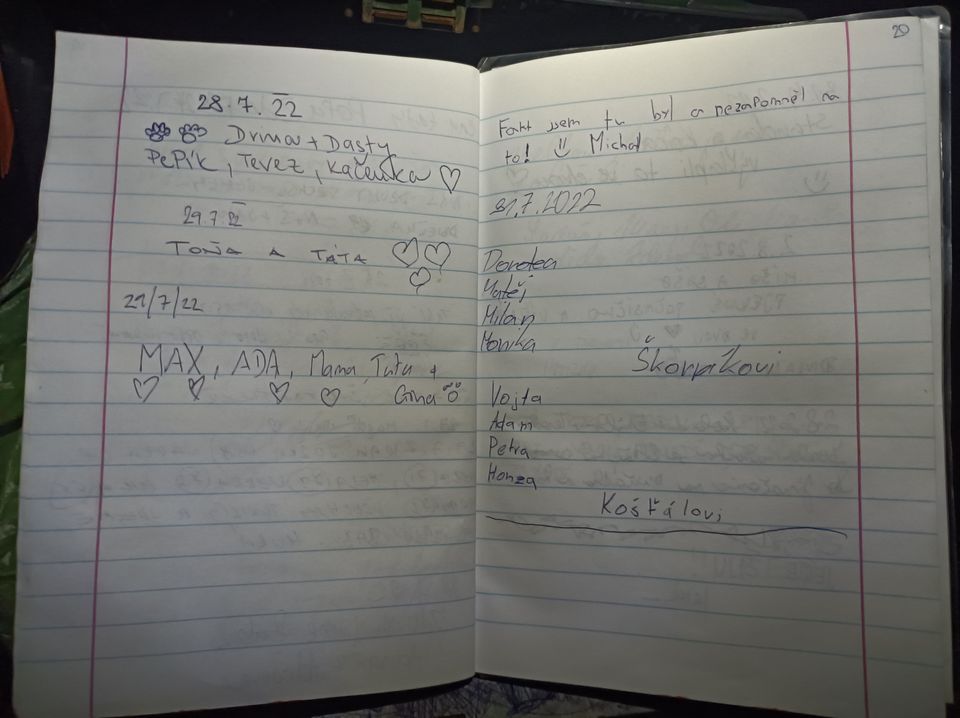 28.7.22
Drma + Dasty
PePík, Tevez, Kačenka
29.7.22
TOŇA A TÁTA
21/7/22
MAX, ADA, Mama, Táta +
Gina
20
Fakt jsem tu byl a nezapomněl na
to! Michal
31.7.2022
Dorotea
Matěj
Milan
Monika
Škorpíkovi
Vojta
Adam
Petra
Honza
Košťálovi